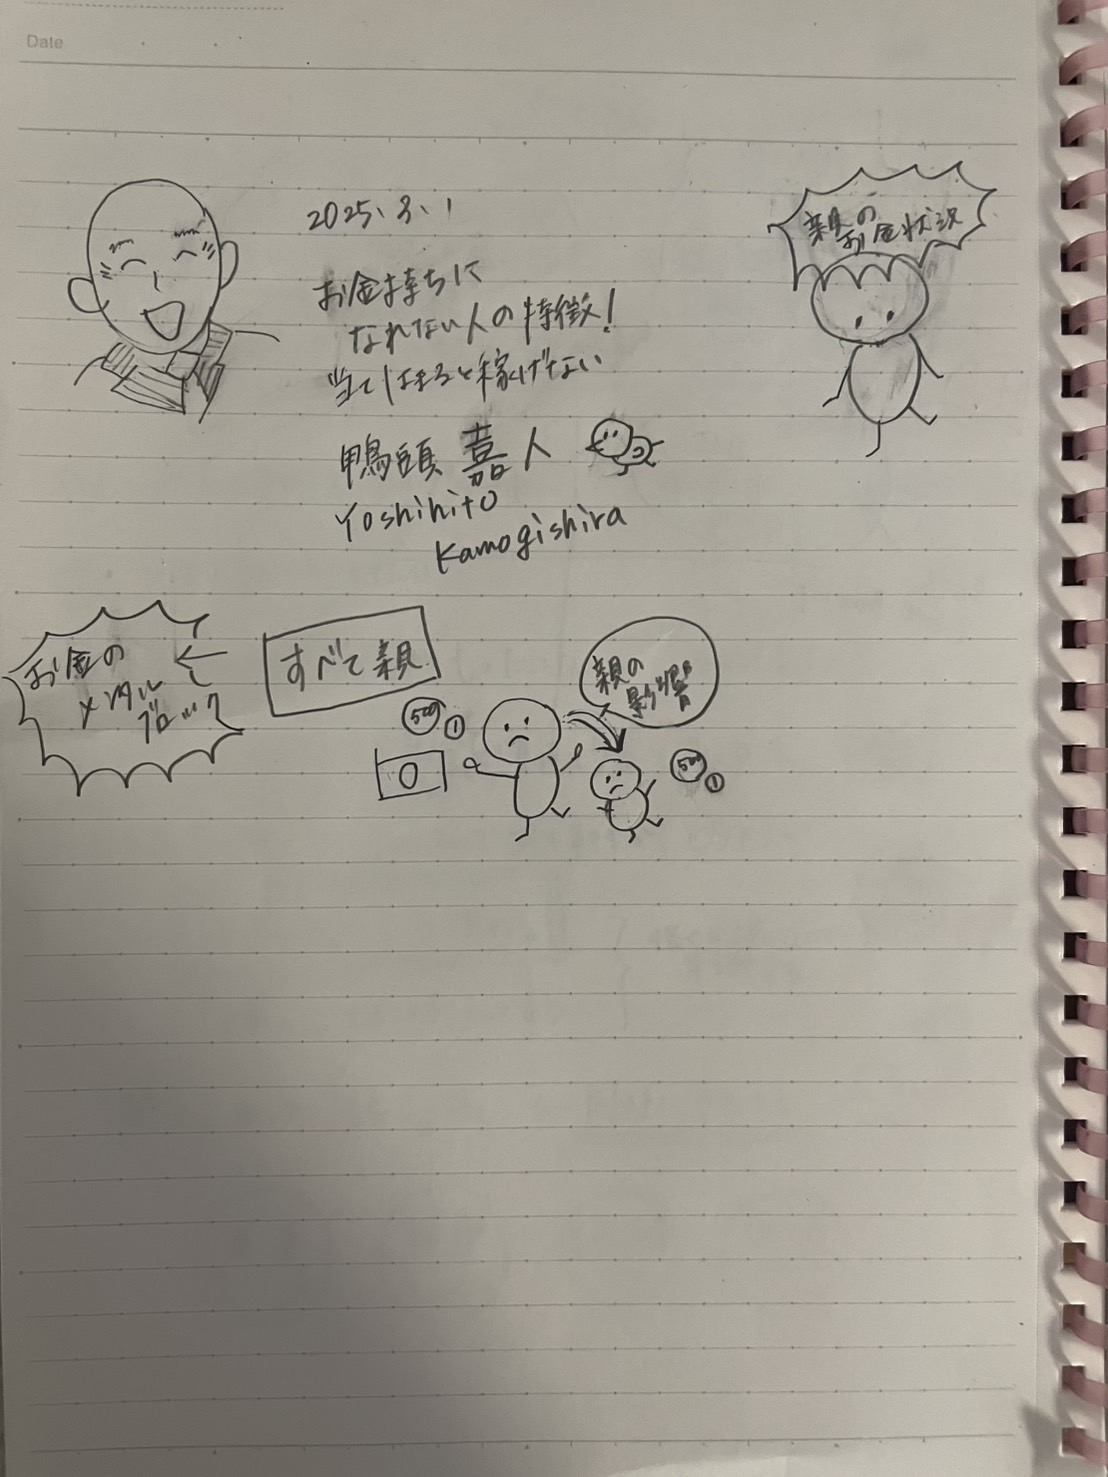 Date
2025.3.1
お金持ちに
なれない人の特徴!
当てはまると稼げない
鴨頭 嘉人
Yoshihito
Kamogishira
親の
お金状況
お金の
メンタル
ブロック
すべて親
親の
影響
500
1
0
500
1